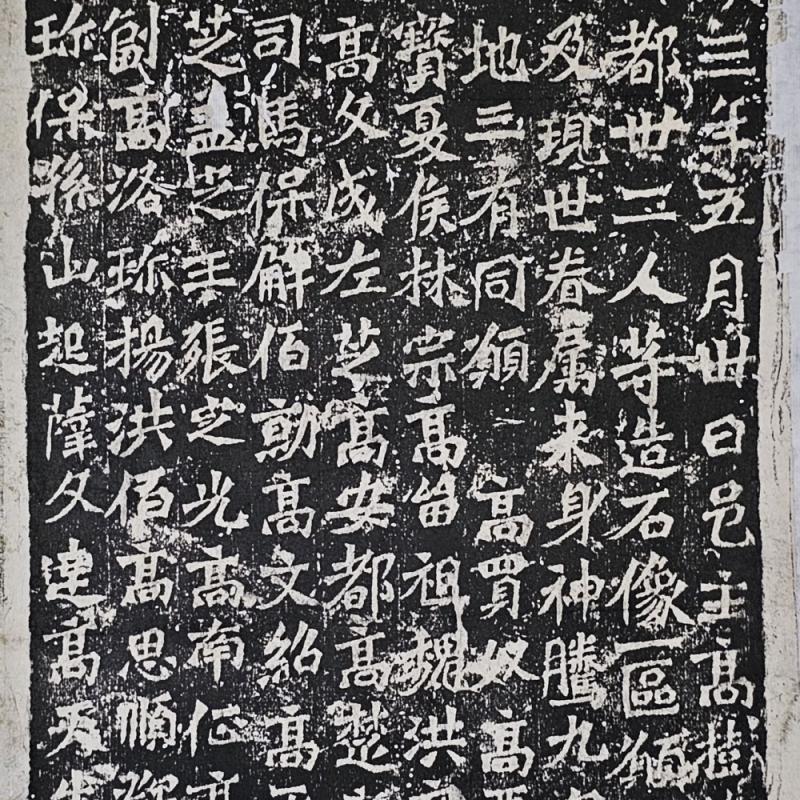 三年五月卅日邑主高樹
都卅二人等造石像一區願
及現世眷属来身神騰九
地三有同願 高買奴高
寶夏侯林宗高留祖魏洪
高文成左芝高安都高楚
司馬保解佰勛高文紹高
芝盖芝王張之光高南征高
劉高洛珎楊洪佰高思順
珎保孫山起薩文達高天